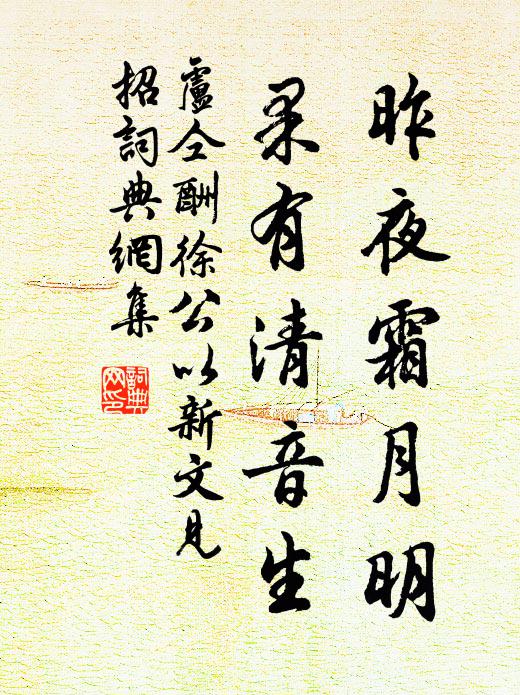 昨夜霜月明
果有清音生
盧仝酬徐公以新文見
招詞典網集
詞典
网印